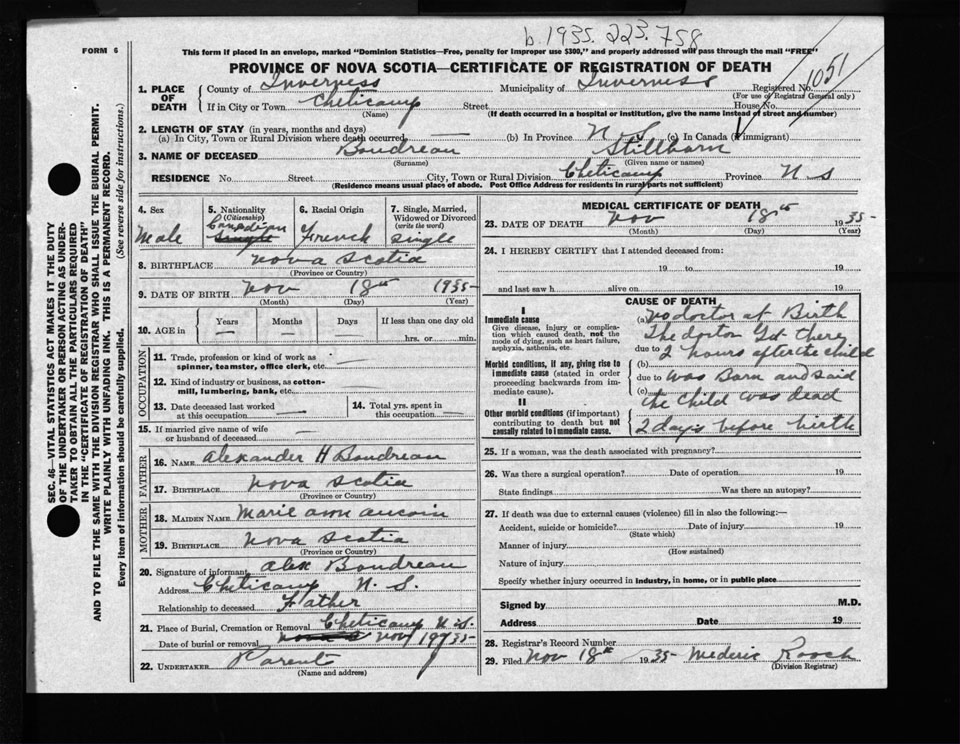 b. 1935. 223. 758
FORM 6
This form if placed in an envelope, marked "Dominion Statistics—Free, penalty for improper use $300," and properly addressed will pass through the mail "FREE"
PROVINCE OF NOVA SCOTIA—CERTIFICATE OF REGISTRATION OF DEATH
1. PLACE OF DEATH
County of Inverness Municipality of Inverness Registered No. 1051
(For use of Registrar General only)
If in City or Town Cheticamp Street House No.
(Name) (If death occurred in a hospital or institution, give the name instead of street and number)
2. LENGTH OF STAY (in years, months and days)
(a) In City, Town or Rural Division where death occurred — (b) In Province N S (c) In Canada (if immigrant)
3. NAME OF DECEASED Boudreau Stillborn
(Surname) (Given name or names)
RESIDENCE No. Street City, Town or Rural Division Cheticamp Province N S
(Residence means usual place of abode. Post Office Address for residents in rural parts not sufficient)
4. Sex Male
5. Nationality (Citizenship) Canadian single
6. Racial Origin French
7. Single, Married, Widowed or Divorced (write the word) single
8. BIRTHPLACE nova scotia
(Province or Country)
9. DATE OF BIRTH Nov 18th 1935-
(Month) (Day) (Year)
10. AGE in Years Months Days If less than one day old
— — hrs. or min.
OCCUPATION
11. Trade, profession or kind of work as spinner, teamster, office clerk, etc. —
12. Kind of industry or business, as cotton-mill, lumbering, bank, etc.
13. Date deceased last worked at this occupation —
14. Total yrs. spent in this occupation —
15. If married give name of wife or husband of deceased —
FATHER
16. NAME Alexander H Boudreau
17. BIRTHPLACE Nova Scotia
(Province or Country)
MOTHER
18. MAIDEN NAME Marie ann aucoin
19. BIRTHPLACE Nova Scotia
(Province or Country)
20. Signature of informant Alex Boudreau
Address Cheticamp N. S.
Relationship to deceased Father
21. Place of Burial, Cremation or Removal Cheticamp N.S.
Date of burial or removal Nov 19 1935-
22. UNDERTAKER Parents
(Name and address)
MEDICAL CERTIFICATE OF DEATH
23. DATE OF DEATH Nov 18th 1935-
(Month) (Day) (Year)
24. I HEREBY CERTIFY that I attended deceased from:
19 to 19
and last saw h alive on 19
CAUSE OF DEATH
I
Immediate cause
Give disease, injury or complication which caused death, not the mode of dying, such as heart failure, asphyxia, asthenia, etc.
(a) no doctor at Birth
The doctor Got there
due to 2 hours after the child
Morbid conditions, if any, giving rise to immediate cause (stated in order proceeding backwards from immediate cause).
(b)
due to was Born and said
(c) the child was dead
II
Other morbid conditions (if important) contributing to death but not causally related to immediate cause.
2 days before birth
25. If a woman, was the death associated with pregnancy?
26. Was there a surgical operation? Date of operation 19
State findings Was there an autopsy?
27. If death was due to external causes (violence) fill in also the following:—
Accident, suicide or homicide? Date of injury 19
(State which)
Manner of injury
(How sustained)
Nature of injury
Specify whether injury occurred in industry, in home, or in public place
Signed by M.D.
Address Date 19
28. Registrar's Record Number
29. Filed Nov 18th 1935- Mederic Roach
(Division Registrar)
SEC. 46—VITAL STATISTICS ACT MAKES IT THE DUTY
OF THE UNDERTAKER OR PERSON ACTING AS UNDER-
TAKER TO OBTAIN ALL THE PARTICULARS REQUIRED
IN THE "CERTIFICATE OF REGISTRATION OF DEATH"
AND TO FILE THE SAME WITH THE DIVISION REGISTRAR WHO SHALL ISSUE THE BURIAL PERMIT.
WRITE PLAINLY WITH UNFADING INK. THIS IS A PERMANENT RECORD.
Every item of information should be carefully supplied. (See reverse side for instructions.)